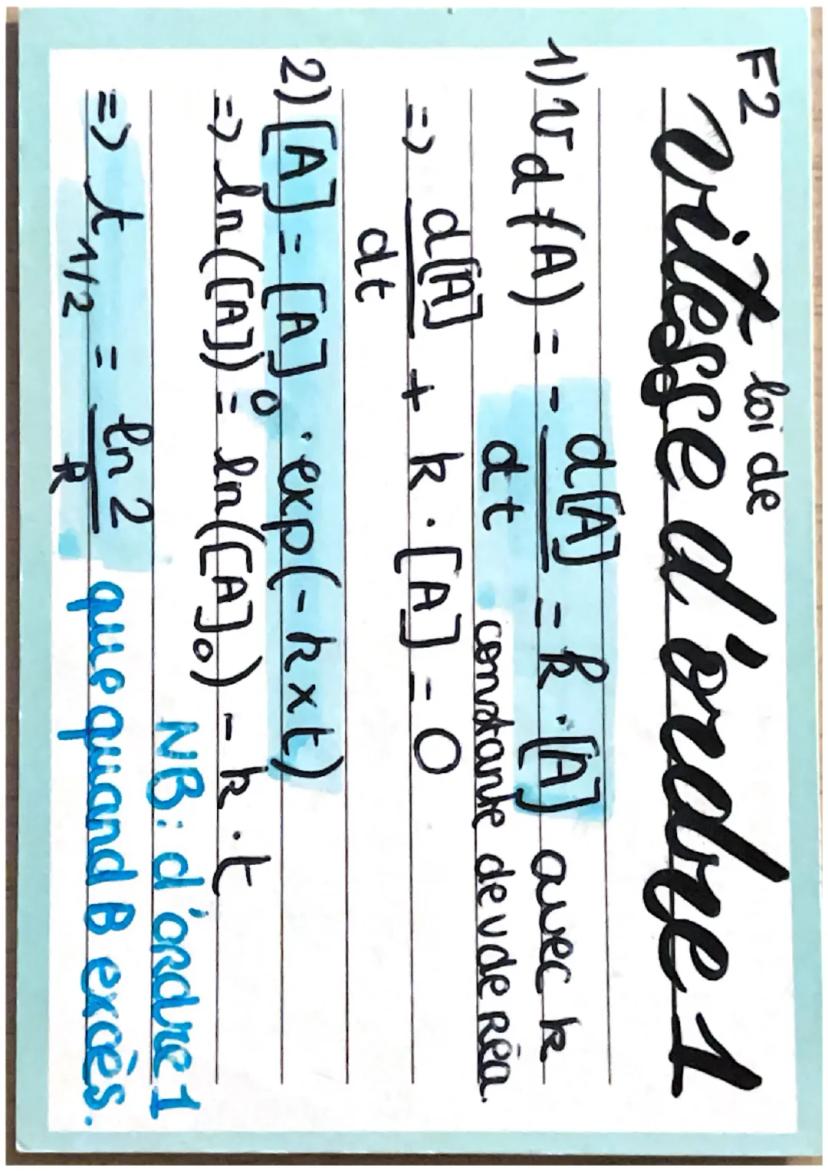 F2
loi de
vitesse d'ordre 1
1) vd(A) = - d[A]/dt = k·[A] avec k
constante de v de réa.
=> d[A]/dt + k·[A] = 0
2) [A] = [A]₀ · exp(-k×t)
=> ln([A]) = ln([A]₀) - k·t
NB: d'ordre 1
=> t1/2 = ln2/k que quand B excès.